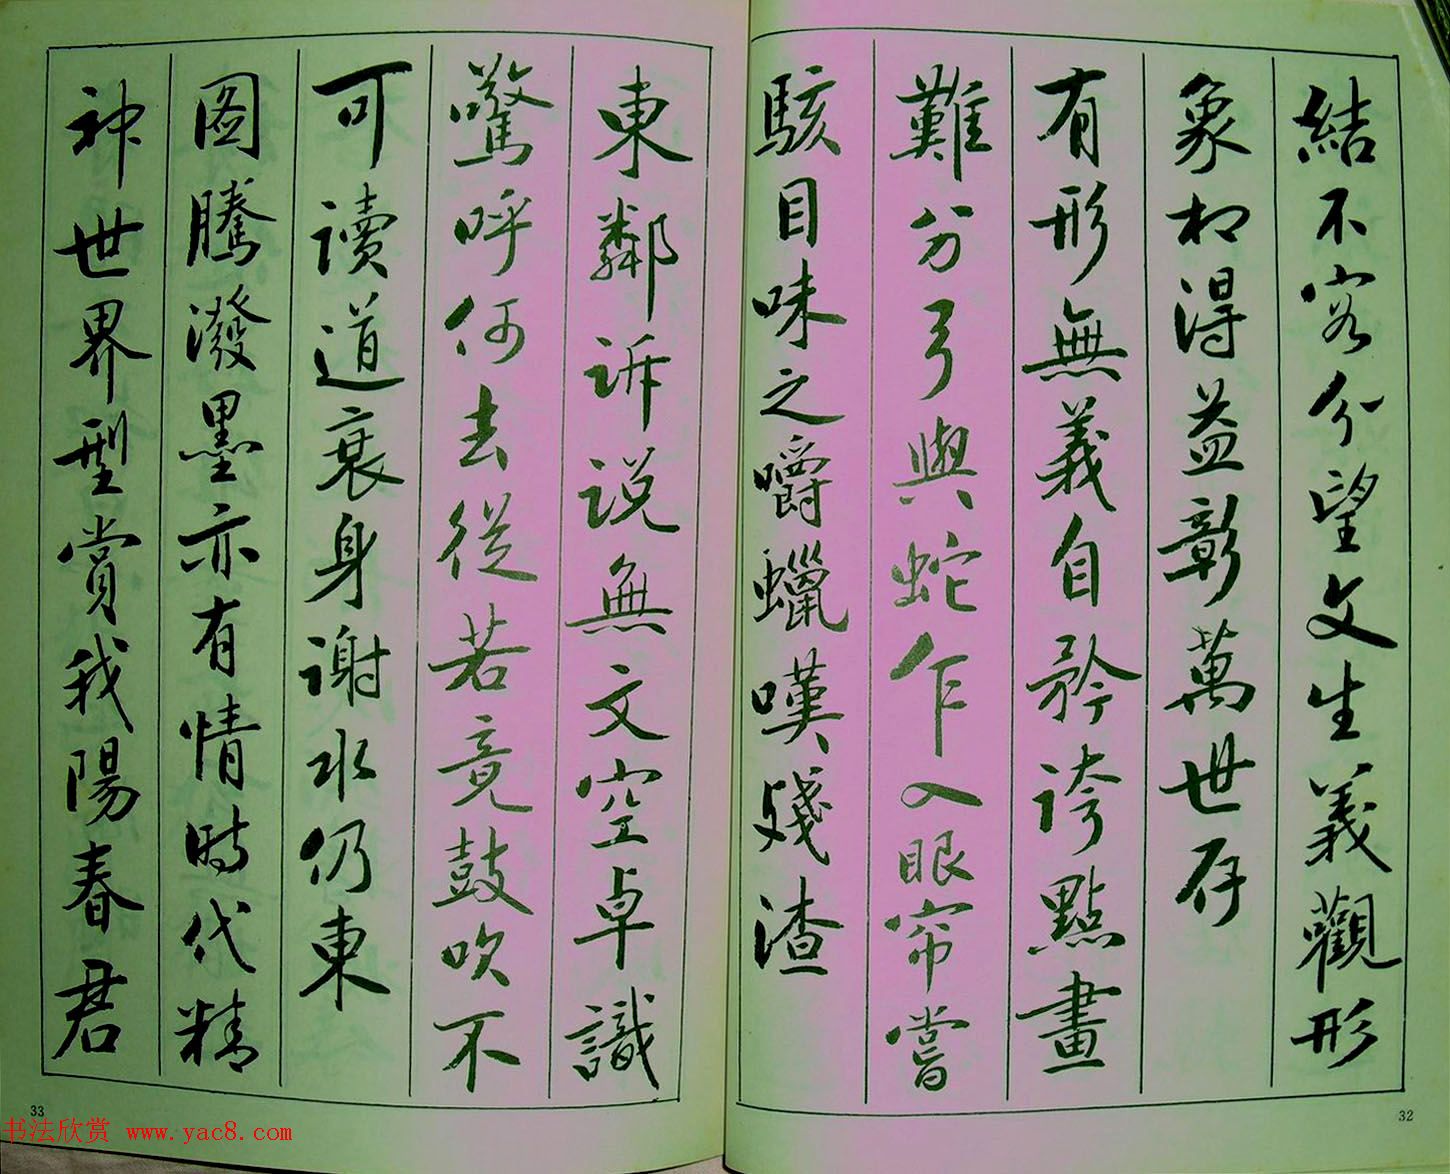 結不容分望文生義觀形
象相得益彰萬世存
有形無義自矜誇點畫
難分弓與蛇乍入眼帘嘗
駭目味之嚼蠟嘆殘渣
東鄰诉说無文空卓識
驚呼何去從若竟鼓吹不
可讀道衰身谢水仍東
图騰潑墨亦有情時代精
神世界型賞我陽春君
32
33
书法欣赏 www.yac8.com